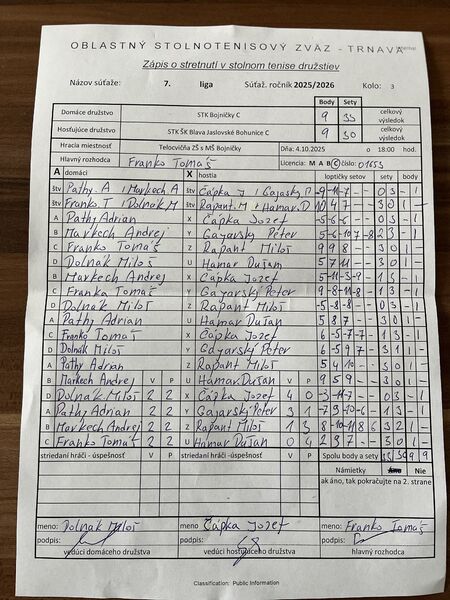 OBLASTNÝ STOLNOTENISOVÝ ZVÄZ - TRNAVA
Zápis o stretnutí v stolnom tenise družstiev
Názov súťaže: 7. liga Súťaž. ročník 2025/2026 Kolo: 3
Body Sety
Domáce družstvo STK Bojničky C 9 33 celkový výsledok
Hosťujúce družstvo STK ŠK Blava Jaslovské Bohunice C 9 30 celkový výsledok
Hracia miestnosť Telocvičňa ZŠ s MŠ Bojničky Dňa: 4.10.2025 o 18:00 hod.
Hlavný rozhodca Franko Tomáš Licencia: M A B C číslo: 01653
A domáci X hostia loptičky setov sety body
štv Pathy. A Markech A štv Čápka J Gajarský P -9 -11 -7 - - 0 3 - 1
štv Franko. T Dolnak M štv Rapant. M Hamar. D 10 4 7 - - 3 0 1 -
A Pathy Adrian X Čápka Jozef -5 -6 -6 - - 0 3 - 1
B Markech Andrej Y Gajarský Peter -5 -6 10 7 -8 2 3 - 1
C Franko Tomáš Z Rapant Miloš 9 9 8 - - 3 0 1 -
D Dolnak Miloš U Hamar Dušan 5 7 11 - - 3 0 1 -
B Markech Andrej X Čápka Jozef -5 -11 3 -9 - 1 3 - 1
C Franko Tomáš Y Gajarský Peter -9 8 -11 -8 - 1 3 - 1
D Dolnak Miloš Z Rapant Miloš -5 -8 -8 - - 0 3 - 1
A Pathy Adrian U Hamar Dušan 5 8 7 - - 3 0 1 -
C Franko Tomáš X Čápka Jozef 6 -5 -7 -7 - 1 3 - 1
D Dolnák Miloš Y Gajarský Peter 6 -5 9 7 - 3 1 1 -
A Pathy Adrian Z Rapant Miloš 5 4 10 - - 3 0 1 -
B Markech Andrej V P U Hamar Dušan V P 9 5 9 - - 3 0 1 -
D Dolnak Miloš 2 2 X Čápka Jozef 4 0 -3 -11 -7 - - 0 3 - 1
A Pathy Adrian 2 2 Y Gajarský Peter 3 1 -7 9 -10 -6 - 1 3 - 1
B Markech Andrej 2 2 Z Rapant Miloš 1 3 8 -10 -11 8 6 3 2 1 -
C Franko Tomáš 2 2 U Hamar Dušan 0 4 2 9 7 - - 3 0 1 -
striedaní hráči - úspešnosť V P striedaní hráči - úspešnosť V P Spolu body a sety 33 30 9 9
Námietky Nie
ak áno, tak pokračujte na 2. strane
meno: Dolnak Miloš meno: Čápka Jozef meno: Franko Tomáš
podpis: podpis: podpis:
vedúci domáceho družstva vedúci hosťujúceho družstva hlavný rozhodca
Classification: Public Information